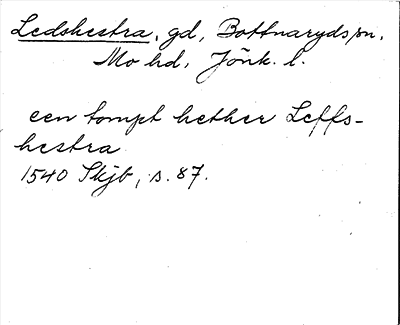 Ledshestra, gd, Bottnaryds sn,
Mo hd, Jönk. l.
een tompt hether Leffs-
hestra
1540 Skjb, s. 87.